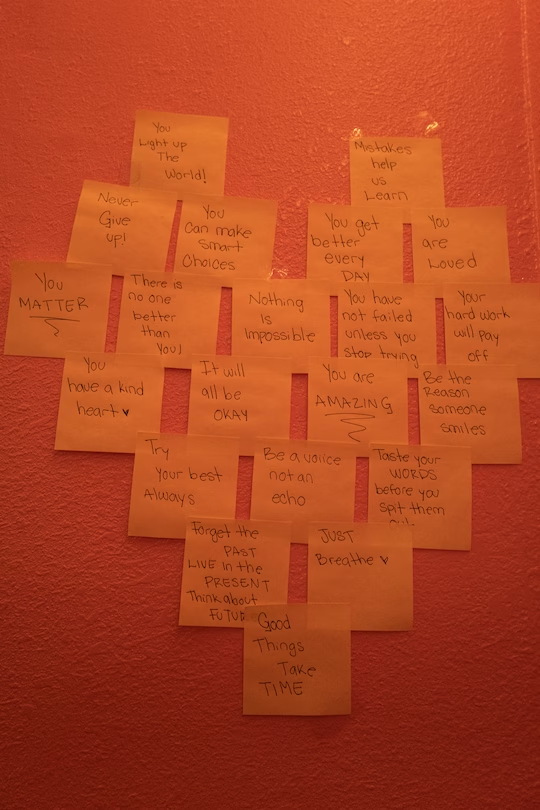 You
Light up
The
World!
Mistakes
help
us
Learn
Never
Give
up!
You
Can make
Smart
Choices
You get
better
every
DAY
You
are
Loved
You
MATTER
There is
no one
better
than
You!
Nothing
Is
Impossible
You have
not failed
unless you
stop trying
Your
hard work
will pay
off
You
have a kind
heart ♥
It will
all be
OKAY
You are
AMAZING
Be the
Reason
someone
smiles
Try
your best
Always
Be a voice
not an
echo
Taste your
WORDS
before you
spit them
Forget the
PAST
LIVE in the
PRESENT
Think about
JUST
Breathe ♥
Good
Things
Take
TIME